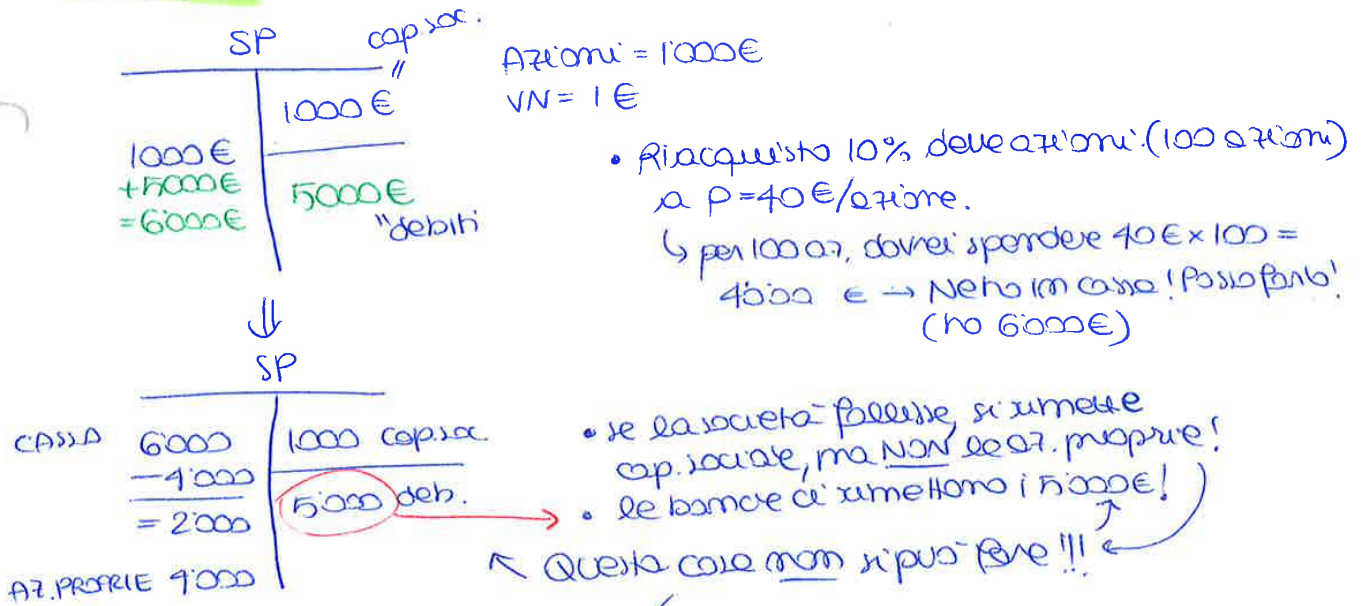 SP cap. soc.
"
1000€
Azioni = 1'000€
VN = 1€
1000€
+5000€
=6'000€
5000€
"debiti
• Riacquisto 10% delle azioni. (100 azioni)
a P=40€/azione.
↳ per 100 az, dovrei spendere 40€ x 100 =
4'000 € → Metto in cassa! Posso farlo!
(ho 6'000€)
⇓
SP
CASSA 6'000 1000 cap.soc.
-4'000 5'000 deb.
= 2'000
AZ. PROPRIE 4'000
• se la società fallisse, si rimette
cap. sociale, ma NON le az. proprie!
• le banche ci rimettono i 5'000€!
Questa cosa non si può fare!!!